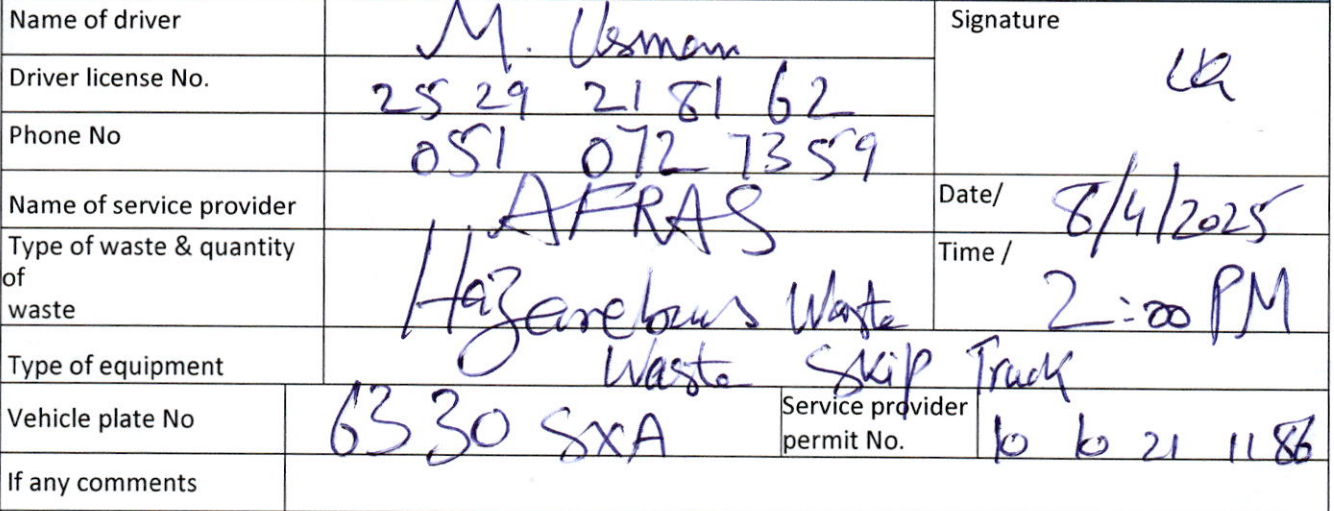 Name of driver M. Usman Signature
Driver license No. 25 29 21 81 62
Phone No 051 072 7359
Name of service provider AFRAS Date/ 8/4/2025
Type of waste & quantity
of
waste Hazarebous Waste Time / 2:00 PM
Type of equipment Waste Skip Truck
Vehicle plate No 6330 SXA Service provider
permit No. 10 10 21 11 86
If any comments